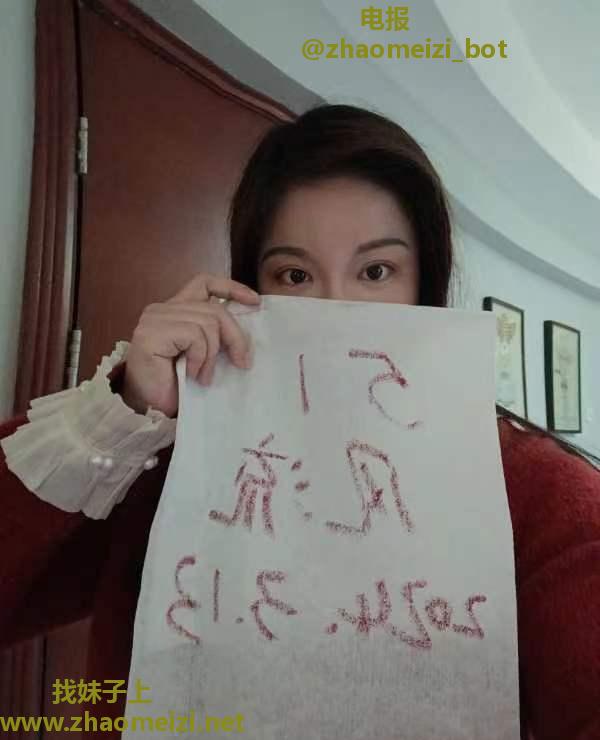 电报
@zhaomeizi_bot
51
风流
2024.3.13
找妹子上
www.zhaomeizi.net